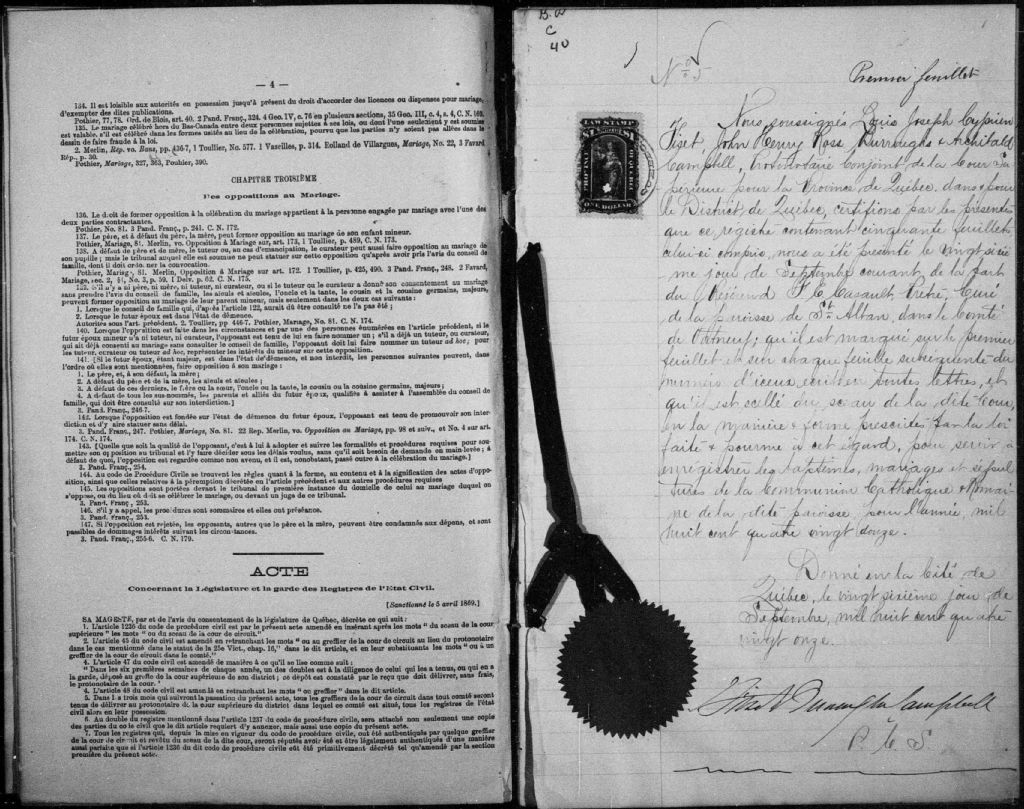 — 4 —
134. Il est loisible aux autorités en possession jusqu'à présent du droit d'accorder des licences ou dispenses pour mariage,
d'exempter des dites publications.
Pothier, 77, 78. Ord. de Blois, art. 40. 2 Pand. Franç., 324. 4 Geo. IV, c. 76 en plusieurs sections, 35 Geo. III, c. 4, s. 4, C. N. 169.
135. Le mariage célébré hors du Bas-Canada entre deux personnes sujettes à ses lois, ou dont l'une seulement y est soumise
est valable, s'il est célébré dans les formes usités au lieu de la célébration, pourvu que les parties n'y soient pas allées dans le
dessein de faire fraude à la loi.
2. Merlin, Rép. vo. Bans, pp. 436-7, 1 Toullier, No. 577. 1 Vazilles, p. 314. Rolland de Villargues, Mariage, No. 22, 3 Favard
Rép., p. 30.
Pothier, Mariage, 327, 363, Pothier, 390.
CHAPITRE TROISIÈME
Des oppositions au Mariage.
136. Le droit de former opposition à la célébration du mariage appartient à la personne engagée par mariage avec l'une des
deux parties contractantes.
Pothier, No. 81. 3 Pand. Franç., p. 241. C. N. 172.
137. Le père, et à défaut du père, la mère, peut former opposition au mariage de son enfant mineur.
Pothier, Mariage, 81. Merlin, vo. Opposition à Mariage sur, art. 173, 1 Toullier, p. 489, C. N. 173.
138. A défaut de père et de mère, le tuteur ou, au cas d'émancipation, le curateur peut aussi faire opposition au mariage de
son pupille; mais le tribunal auquel elle est soumise ne peut statuer sur cette opposition qu'après avoir pris l'avis du conseil de
famille, dont il doit ordonner la convocation.
Pothier, Mariage, 81. Merlin, Opposition à Mariage sur art. 172. 1 Toullier, p. 425, 490. 3 Pand. Franç., 248. 2 Favard,
Mariage, sec. 2, No. 3, p. 59. 1 Delv. p. 62. C. N. 175.
139. S'il n'y a ni père, ni mère, ni tuteur, ni curateur, ou si le tuteur ou le curateur a donné son consentement au mariage
sans prendre l'avis du conseil de famille, les aïeuls et aïeules, l'oncle et la tante, le cousin et la cousine germains, majeurs,
peuvent former opposition au mariage de leur parent mineur, mais seulement dans les deux cas suivants:
1. Lorsque le conseil de famille qui, d'après l'article 122, aurait dû être consulté ne l'a pas été;
2. Lorsque le futur époux est dans l'état de démence.
Autorités sous l'art. précédent. 2. Toullier, pp 446-7. Pothier, Mariage, No. 81. C. N. 174.
140. Lorsque l'opposition est faite dans les circonstances et par une des personnes énumérées en l'article précédent, si le
futur époux mineur n'a ni tuteur, ni curateur, l'opposant est tenu de lui en faire nommer un; s'il a déjà un tuteur, ou curateur,
qui ait déjà consenti au mariage sans consulter le conseil de famille, l'opposant doit lui faire nommer un tuteur ad hoc; pour
les tuteur, curateur ou tuteur ad hoc, représenter les intérêts du mineur sur cette opposition.
141. [Si le futur époux, étant majeur, est dans l'état de démence, et non interdit, les personnes suivantes peuvent, dans
l'ordre où elles sont mentionnées, faire opposition à son mariage:
1. Le père, et, à son défaut, la mère;
2. A défaut du père et de la mère, les aïeuls et aïeules;
3. A défaut de ces derniers, le frère ou la sœur, l'oncle ou la tante, le cousin ou la cousine germains, majeurs;
4. A défaut de tous les sus-nommés, les parents et alliés du futur époux, qualifiés à assister à l'assemblée du conseil de
famille, qui doit être consulté sur son interdiction.]
3. Pand. Franç., 246-7.
142. Lorsque l'opposition est fondée sur l'état de démence du futur époux, l'opposant est tenu de promouvoir son inter-
diction et d'y aire statuer sans délai.
3. Pand. Franç., 247. Pothier, Mariage, No. 81. 22 Rep. Merlin, vo. Opposition au Mariage, pp. 98 et suiv., et No. 4 sur art.
174. C. N. 174.
143. [Quelle que soit la qualité de l'opposant, c'est à lui à adopter et suivre les formalités et procédures requises pour sou-
mettre son opposition au tribunal et l'y faire décider sous les délais voulus, sans qu'il soit besoin de demande en main levée; à
défaut de quoi, l'opposition est regardée comme non avenu, et il est, nonobstant, passé outre à la célébration du mariage.]
3. Pand. Franç., 254.
144. Au code de Procédure Civile se trouvent les règles quant à la forme, au contenu et à la signification des actes d'oppo-
sition, ainsi que celles relatives à la péremption décrétée en l'article précédent et aux autres procédures requises
145. Les oppositions sont portées devant le tribunal de première instance du domicile de celui au mariage duquel on
s'oppose, ou du lieu où doit se célébrer le mariage, ou devant un juge de ce tribunal.
3. Pand. Franç., 253.
146. S'il y a appel, les procédures sont sommaires et elles ont préséance.
3. Pand. Franç., 253.
147. Si l'opposition est rejetée, les opposants, autres que le père et la mère, peuvent être condamnés aux dépens, et sont
passibles de dommages intérêts suivant les circonstances.
3. Pand. Franç., 255-6. C. N. 179.
ACTE
Concernant la Législature et la garde des Registres de l'Etat Civil.
[Sanctionné le 5 avril 1869.]
SA MAGESTÉ, par et de l'avis du consentement de la législature de Québec, décrète ce qui suit:
1. L'article 1236 du code de procédure civil est par le présent acte amendé en insérant après les mots "du sceau de la cour
supérieure" les mots "ou du sceau de la cour de circuit."
2. L'article 45 du code civil est amendé en retranchant les mots "ou au greffier de la cour de circuit au lieu du protonotaire
dans le cas mentionné dans le statut de la 25e Vict., chap. 16," dans le dit article, et en leur substituants les mots "ou à un
greffier de la cour de circuit dans le comté."
4. L'article 47 du code civil est amendé de manière à ce qu'il se lise comme suit:
"Dans les six premières semaines de chaque année, un des doubles est à la diligence de celui qui les a tenus, ou qui en a
la garde, déposé au greffe de la cour supérieure de son district; ce dépôt est constaté par le reçu que doit délivrer, sans frais,
le protonotaire de la cour."
4. L'article 48 du code civil est amendé en retranchant les mots "ou greffier" dans le dit article.
5. Dans l a trois mois qui suivront la passation du présent acte, tous les greffiers de la cour de circuit dans tout comté seront
tenus de délivrer au protonotaire de la cour supérieure du district dans lequel ce comté est situé, tous les registres de l'état
civil alors en leur possession.
6. Au double du registre mentionné dans l'article 1237 du code de procédure civile, sera attaché non seulement une copie
des parties du code civil que le dit article requiert d'y annexer, mais aussi une copie du présent acte.
7. Tous les registres qui, depuis la mise en vigueur du code de procédure civile, ont été authentiqués par quelque greffier
de la cour de circuit et revêtu du sceau de la dite cour, seront réputés avoir été et être légalement authentiqués d'une manière
aussi parfaite que si l'article 1236 du dit code de procédure civile eût été primitivement décrété tel qu'amendé par la section
première du présent acte.
C
40
No 5
Premier feuillet
LAW STAMP
ONE DOLLAR
Nous soussignés Louis Joseph Cyprien
Fiset, John Henry Rose Burroughs & Archibald
Campbell, Protonotaire Conjoint de la Cour Su-
périeure pour la Province de Québec, dans & pour
le District de Québec, certifions par les présentes
que ce registre contenant cinquante feuillets
celui-ci compris, nous a été présenté le vingt sixiè-
me jour de Septembre courant, de la part
du Révérend F. E. Casault, Prêtre, Curé
de la paroisse de St. Alban, dans le Comté
de Portneuf; qu'il est marqué sur le premier
feuillet et sur chaque feuille subséquente du
numéro d'iceux écrit en toutes lettres, et
qu'il est scellé du sceau de la dite Cour,
en la manière & forme prescrite par la loi
faite & pourvue à cet égard, pour servir à
enregistrer les baptêmes, mariages et sépul
tures de la Communion Catholique & Romai-
ne de la dite paroisse pour l'année mil
huit cent quatre vingt douze.
Donné en la Cité de
Québec, le vingt sixième jour de
Septembre, mil huit cent quatre
vingt onze.
Fiset Burroughs Campbell
P. C. S.